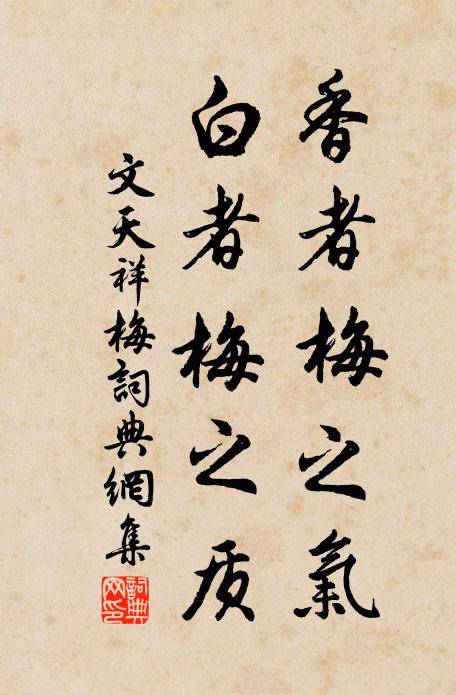 香者梅之氣
白者梅之质
文天祥梅詞典網集
詞典
网印